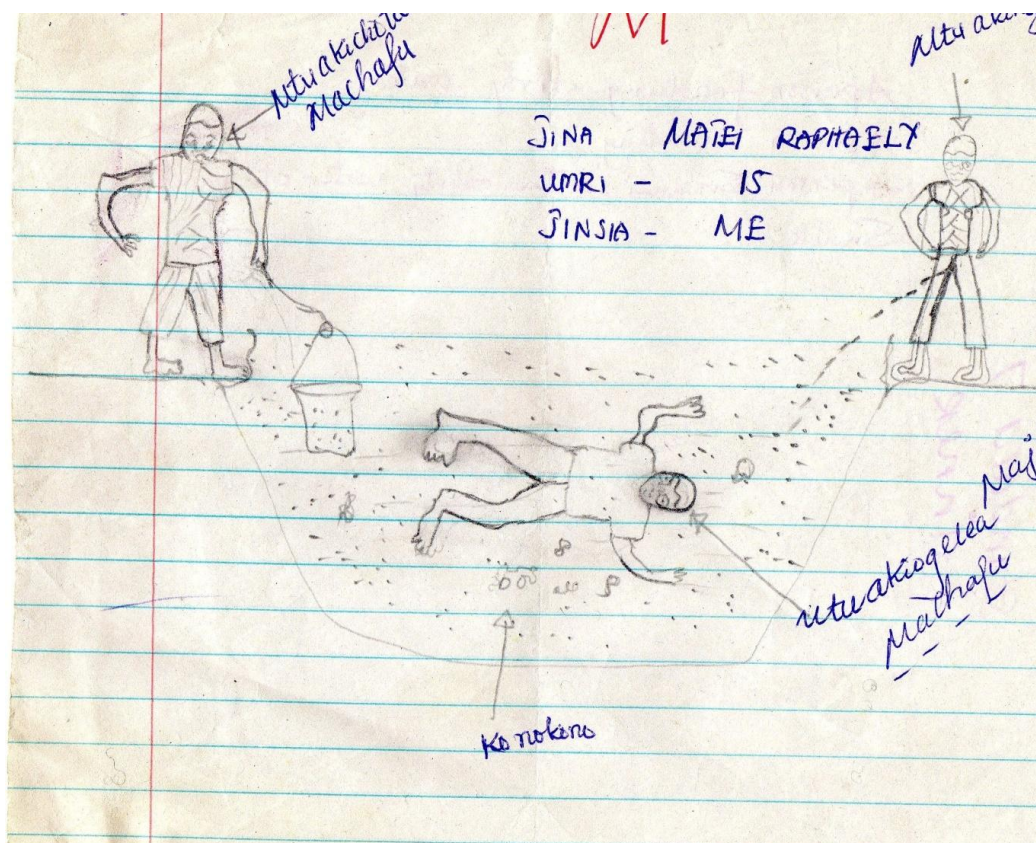 Mtu akichota
Machafu
Mtu akin
JINA MATEI RAPHAELY
UMRI - 15
JINSIA - ME
Mtu akiogelea Maj
Machafu
Konokono